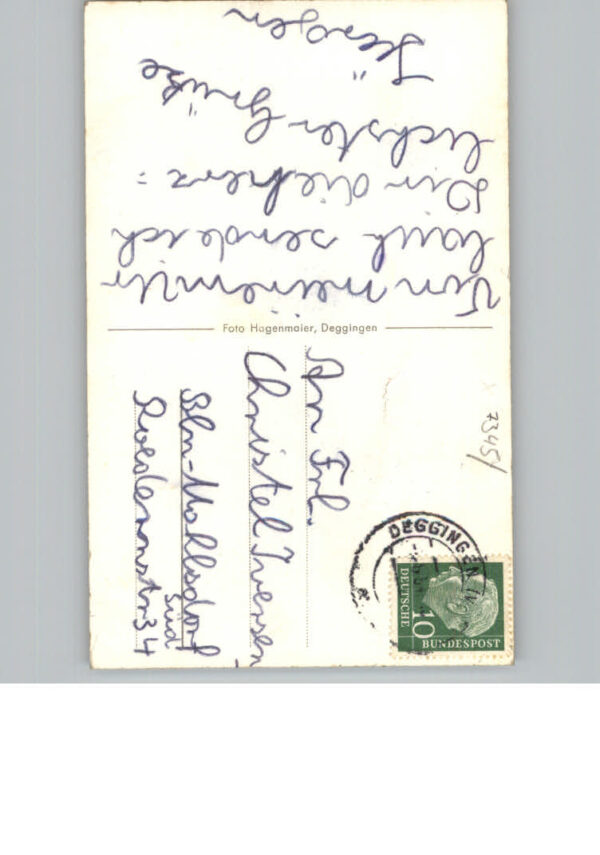 Von meinem Ur
laub sende ich
Dir die herz =
lichsten Grüße
Jürgen
Foto Hagenmaier, Deggingen
An Frl.
Christel
Bln-Mahlsdorf
Süd
Roedernstr 34
7345/
DEGGINGEN
DEUTSCHE
10
BUNDESPOST